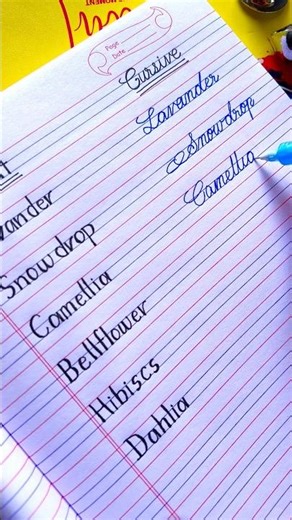 Page
Date
Cursive
vander
Lavander
Snowdrop
Snowdrop
Camellia
Camellia
Bellflower
Hibiscs
Dahlia